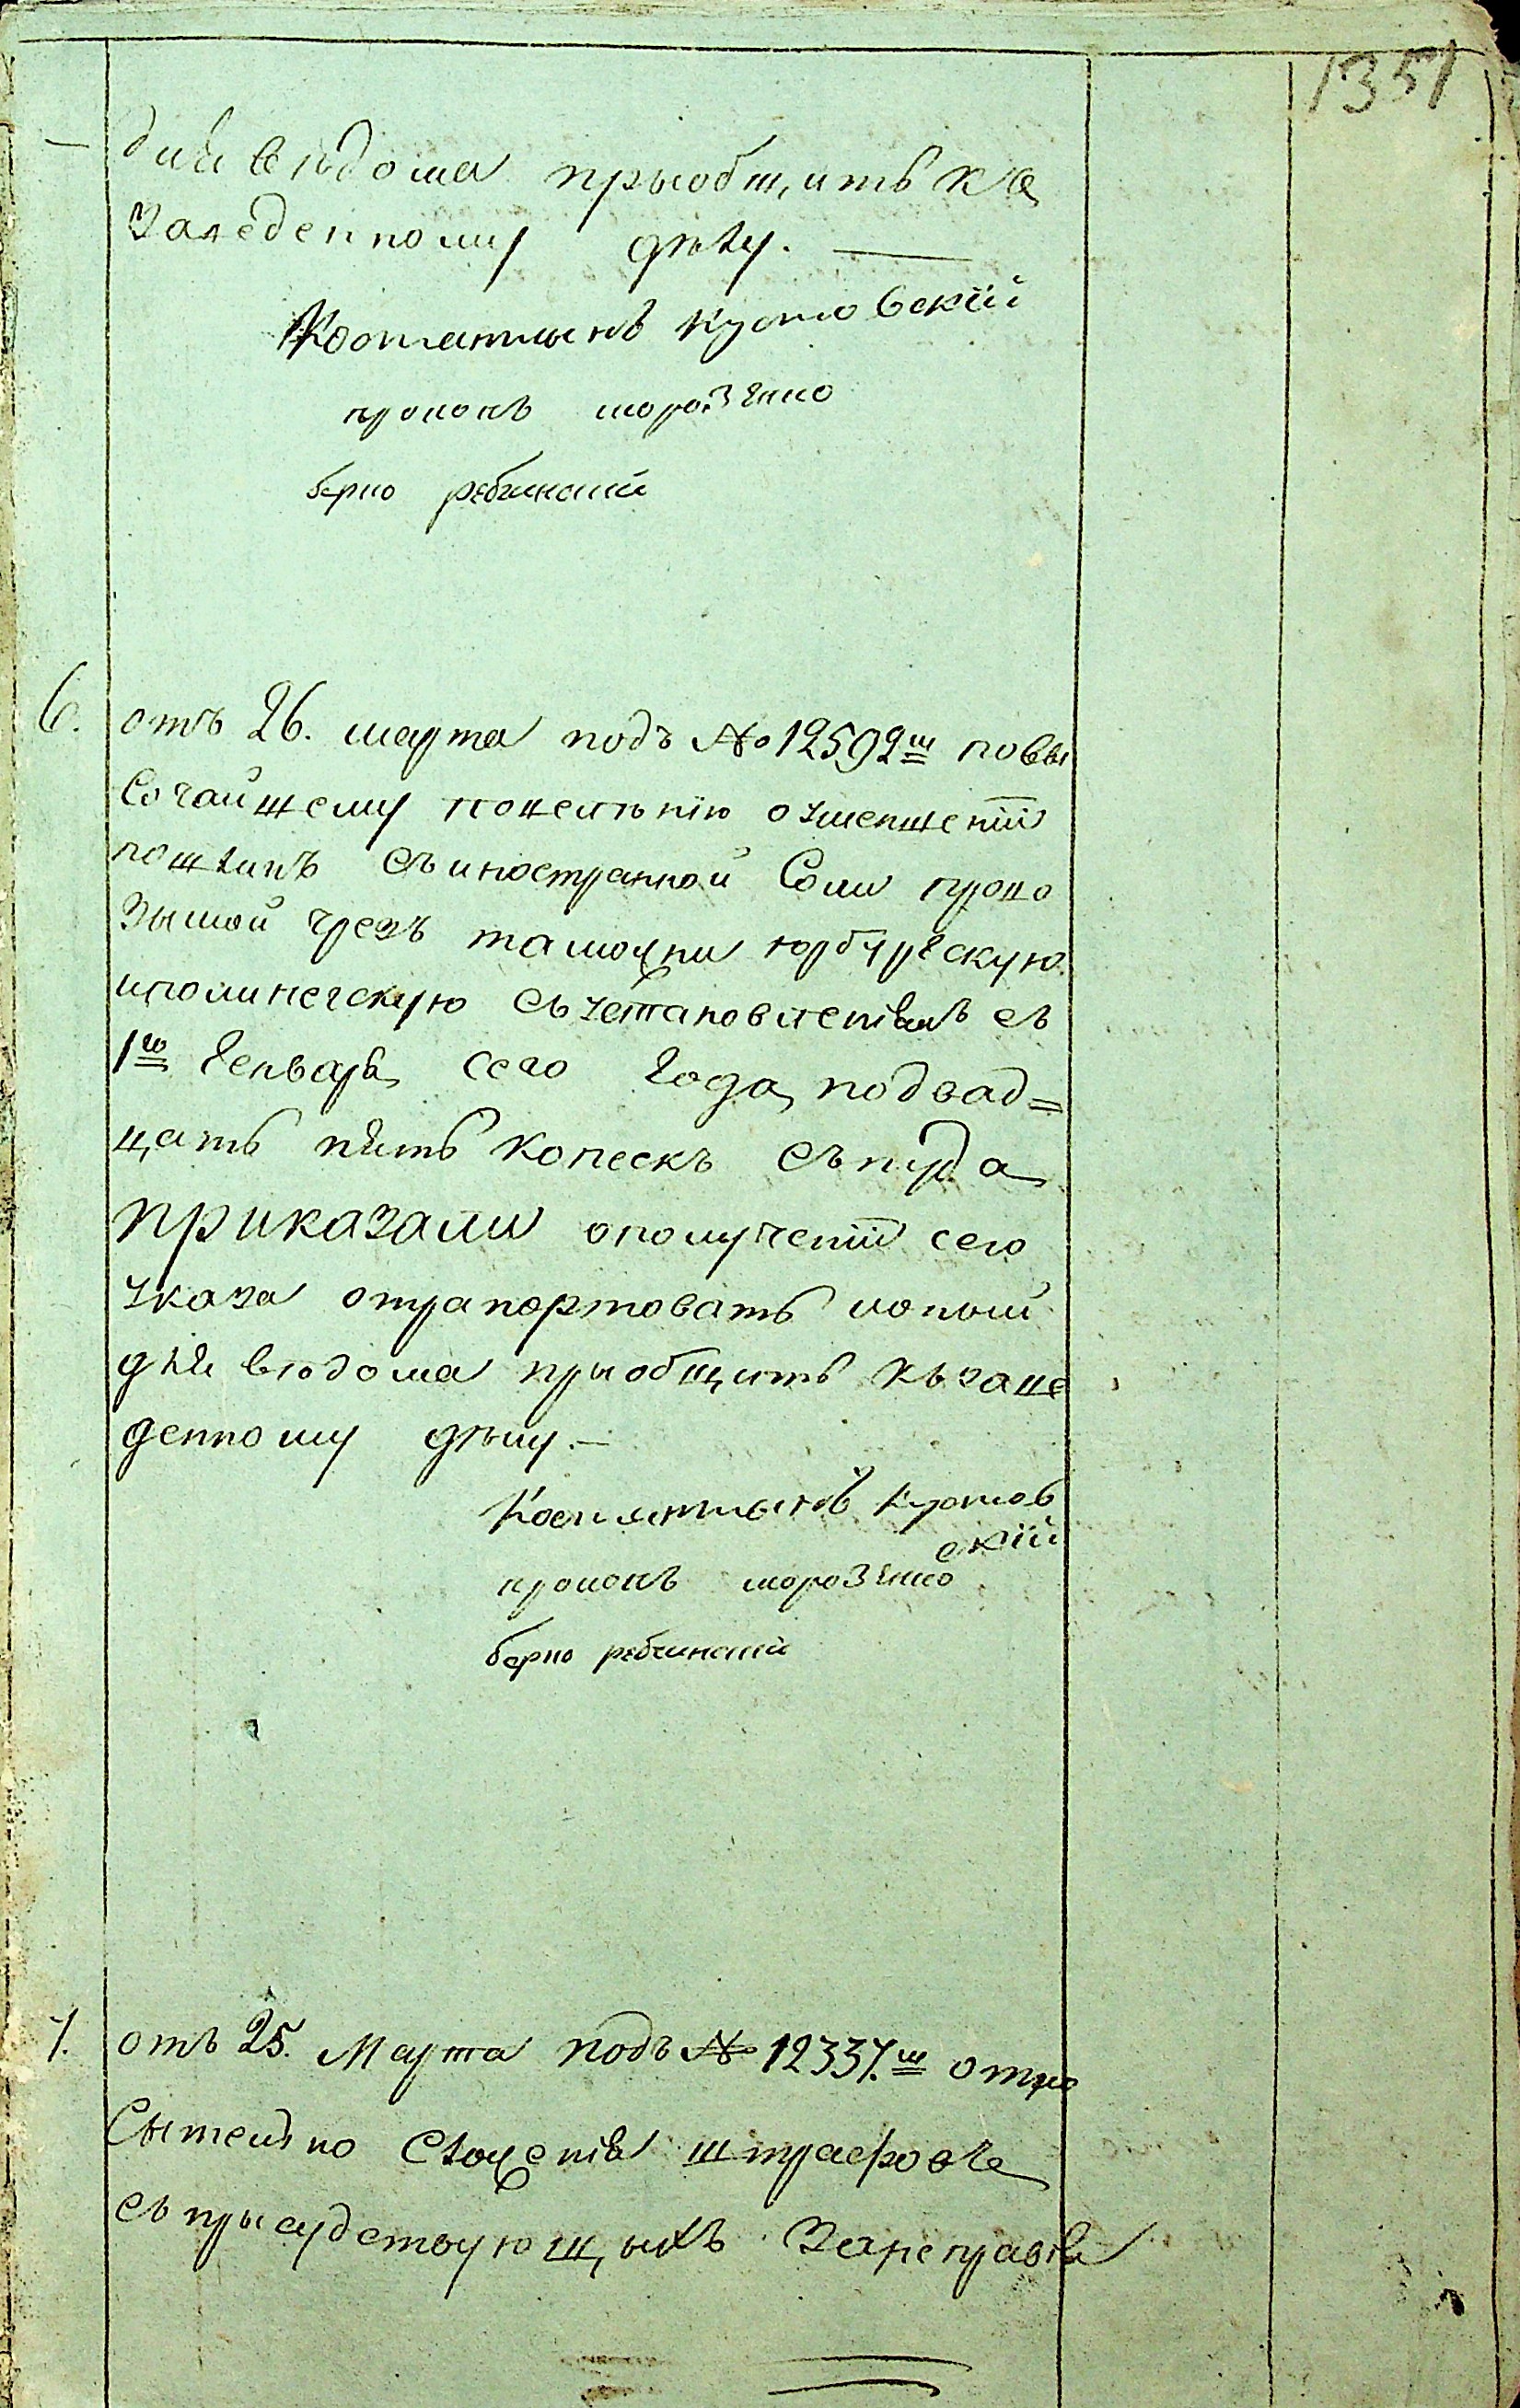 1351
для вѣдома прыобщить ка
заведенному дѣлу. —
Костантынъ Кутновскій
прокопъ морозенко
берко рабинский
6. отъ 26. марта подъ № 12592ш повы
сочайшему повелѣнію о уменшеніи
пошлинъ съ иностранной соли прово
зымой чрезъ таможни юрбурскую
иполингскую съ установленіемъ съ
1го генваря сего года подвад=
цать пять копеекъ съ пуда
приказали ополученіи сего
указа отрапортовать ионый
для вѣдома прыобщить къ заве
денному дѣлу. —
Костантынъ Кутнов
скій
прокопъ морозенко
берко рабинский
7. отъ 25. Марта подъ № 12337.ш отно
сытелно сложенія штрафовъ
съ прысудствующыхъ Занеправіа